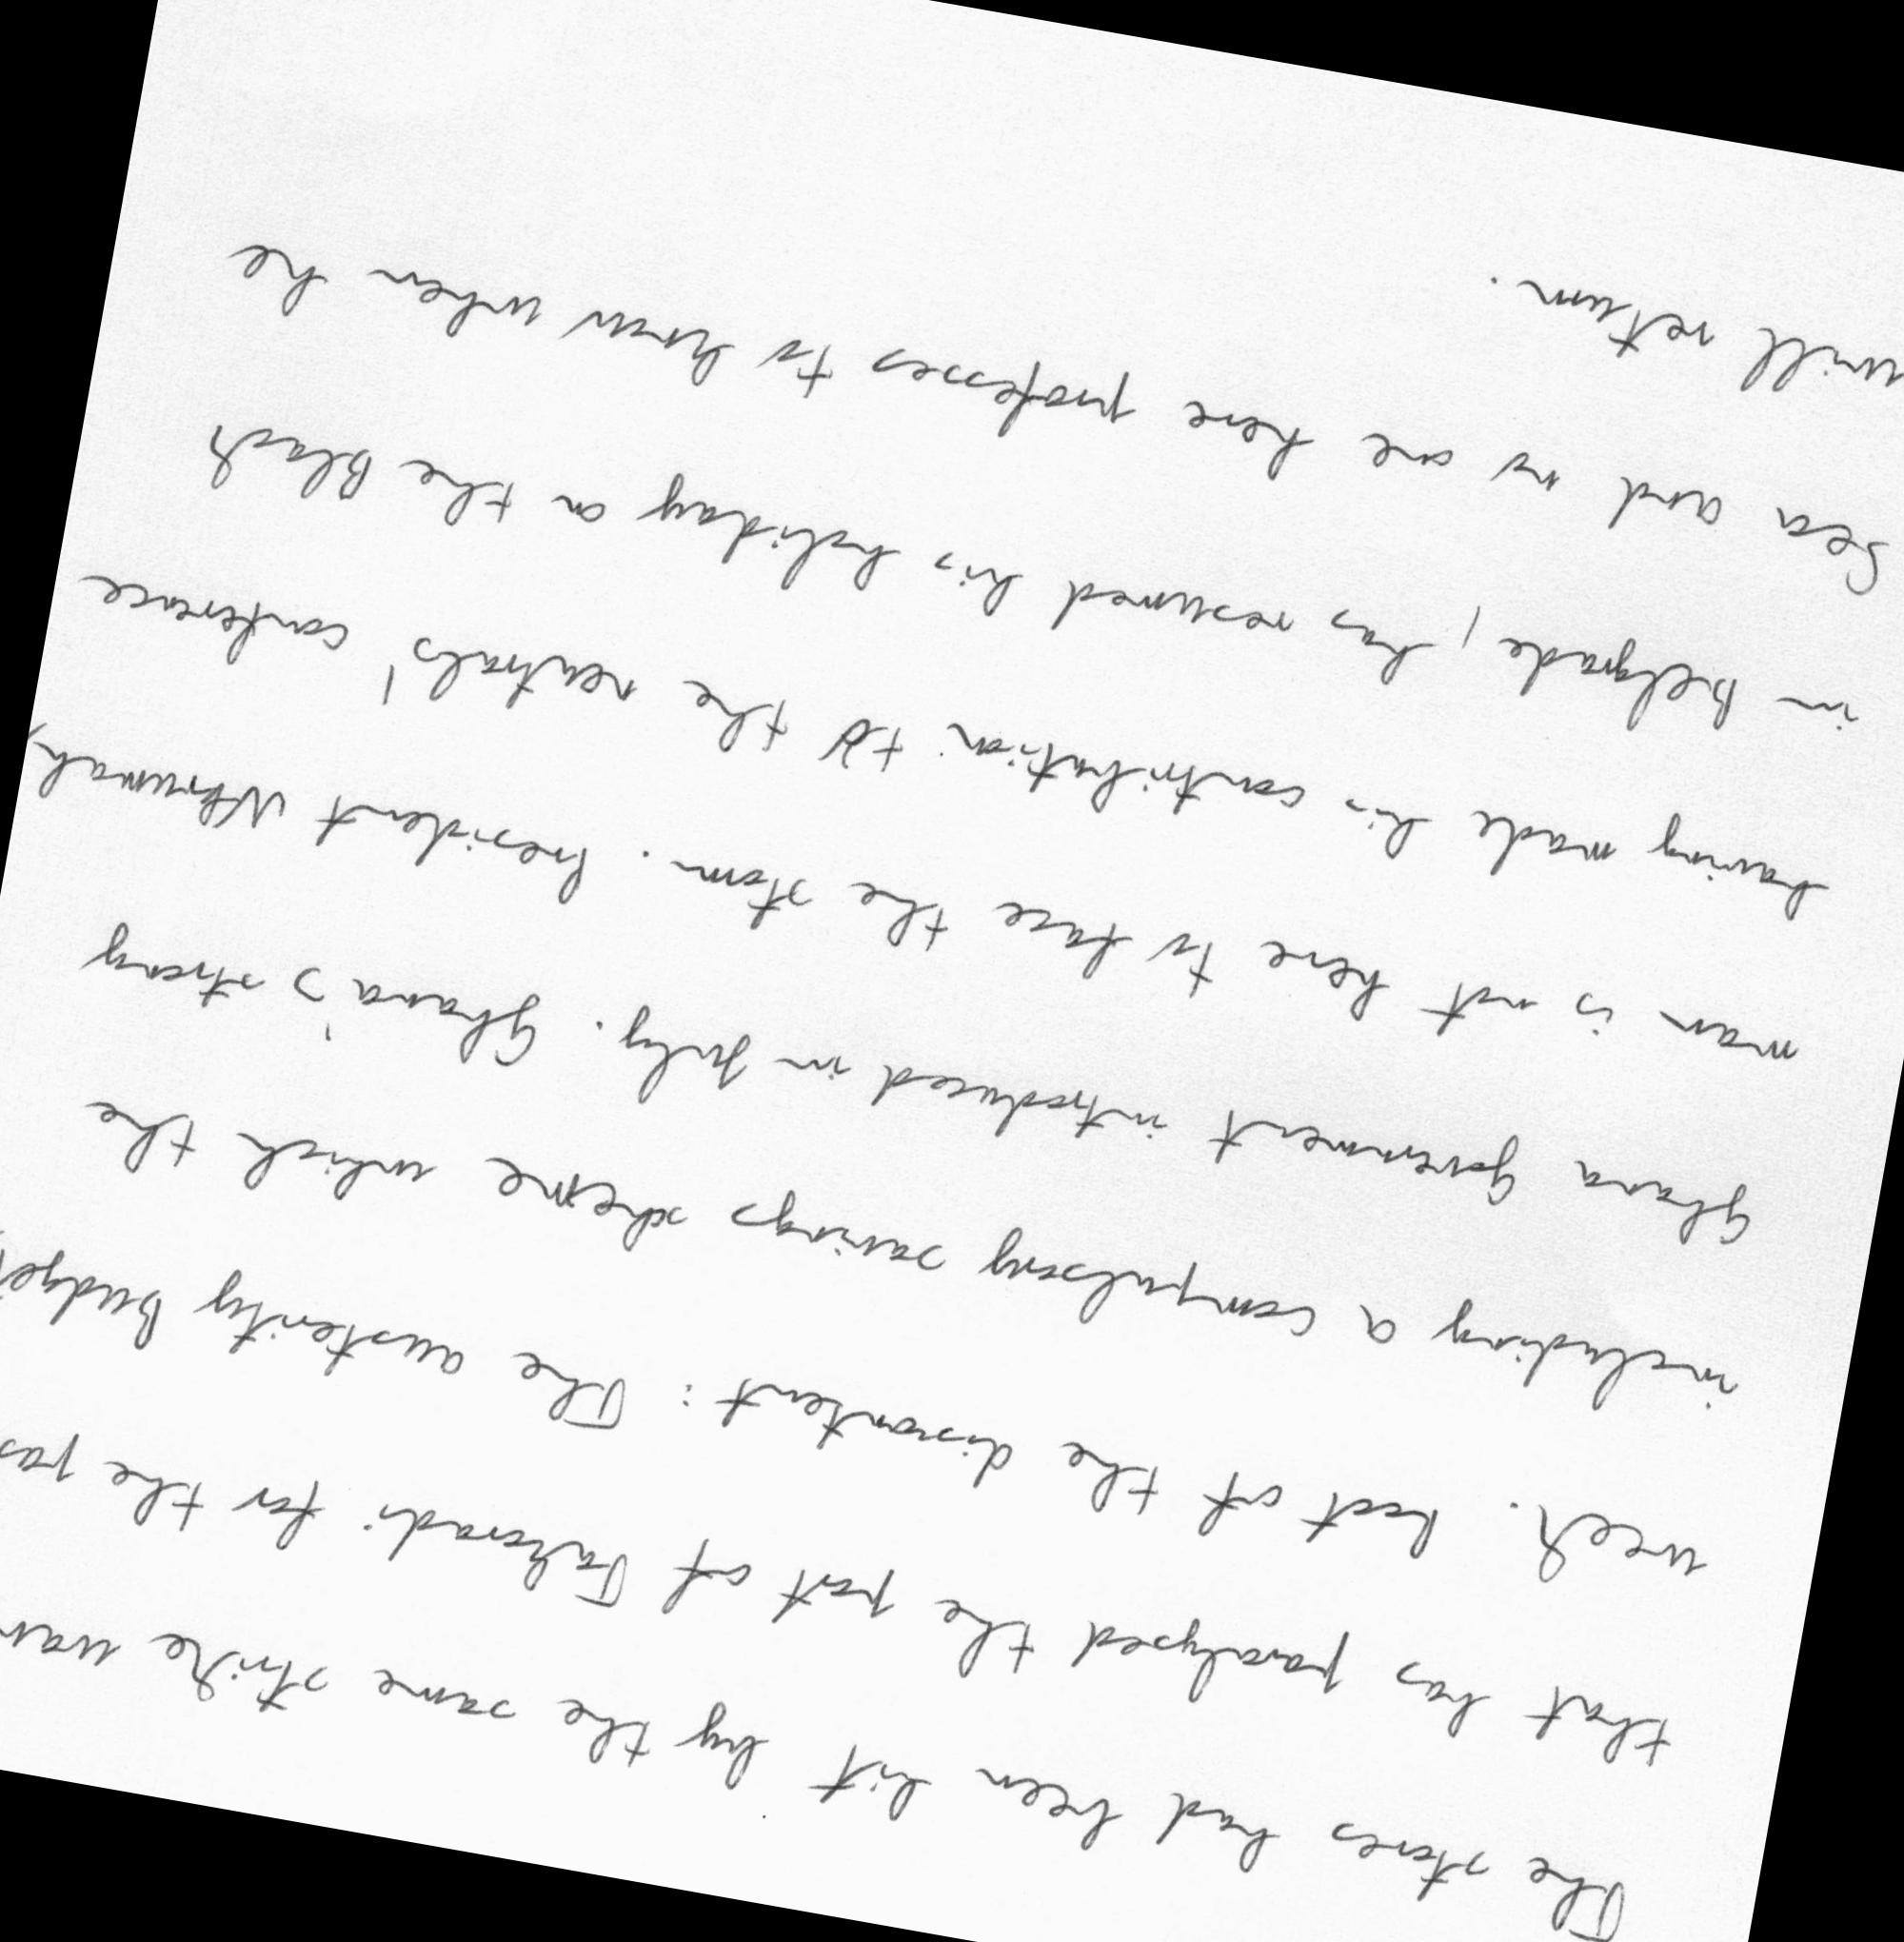 The stores had been hit by the same strike wave
that has paralysed the port of Takoradi for the pas
week. Root of the discontent: The austerity Budget,
including a compulsory savings scheme which the
Ghana Government introduced in July. Ghana's strong
man is not here to face the storm. President Nkrumah,
having made his contribution to the neutrals' conference
in Belgrade, has resumed his holiday on the Black
Sea and no one here professes to know when he
will return.